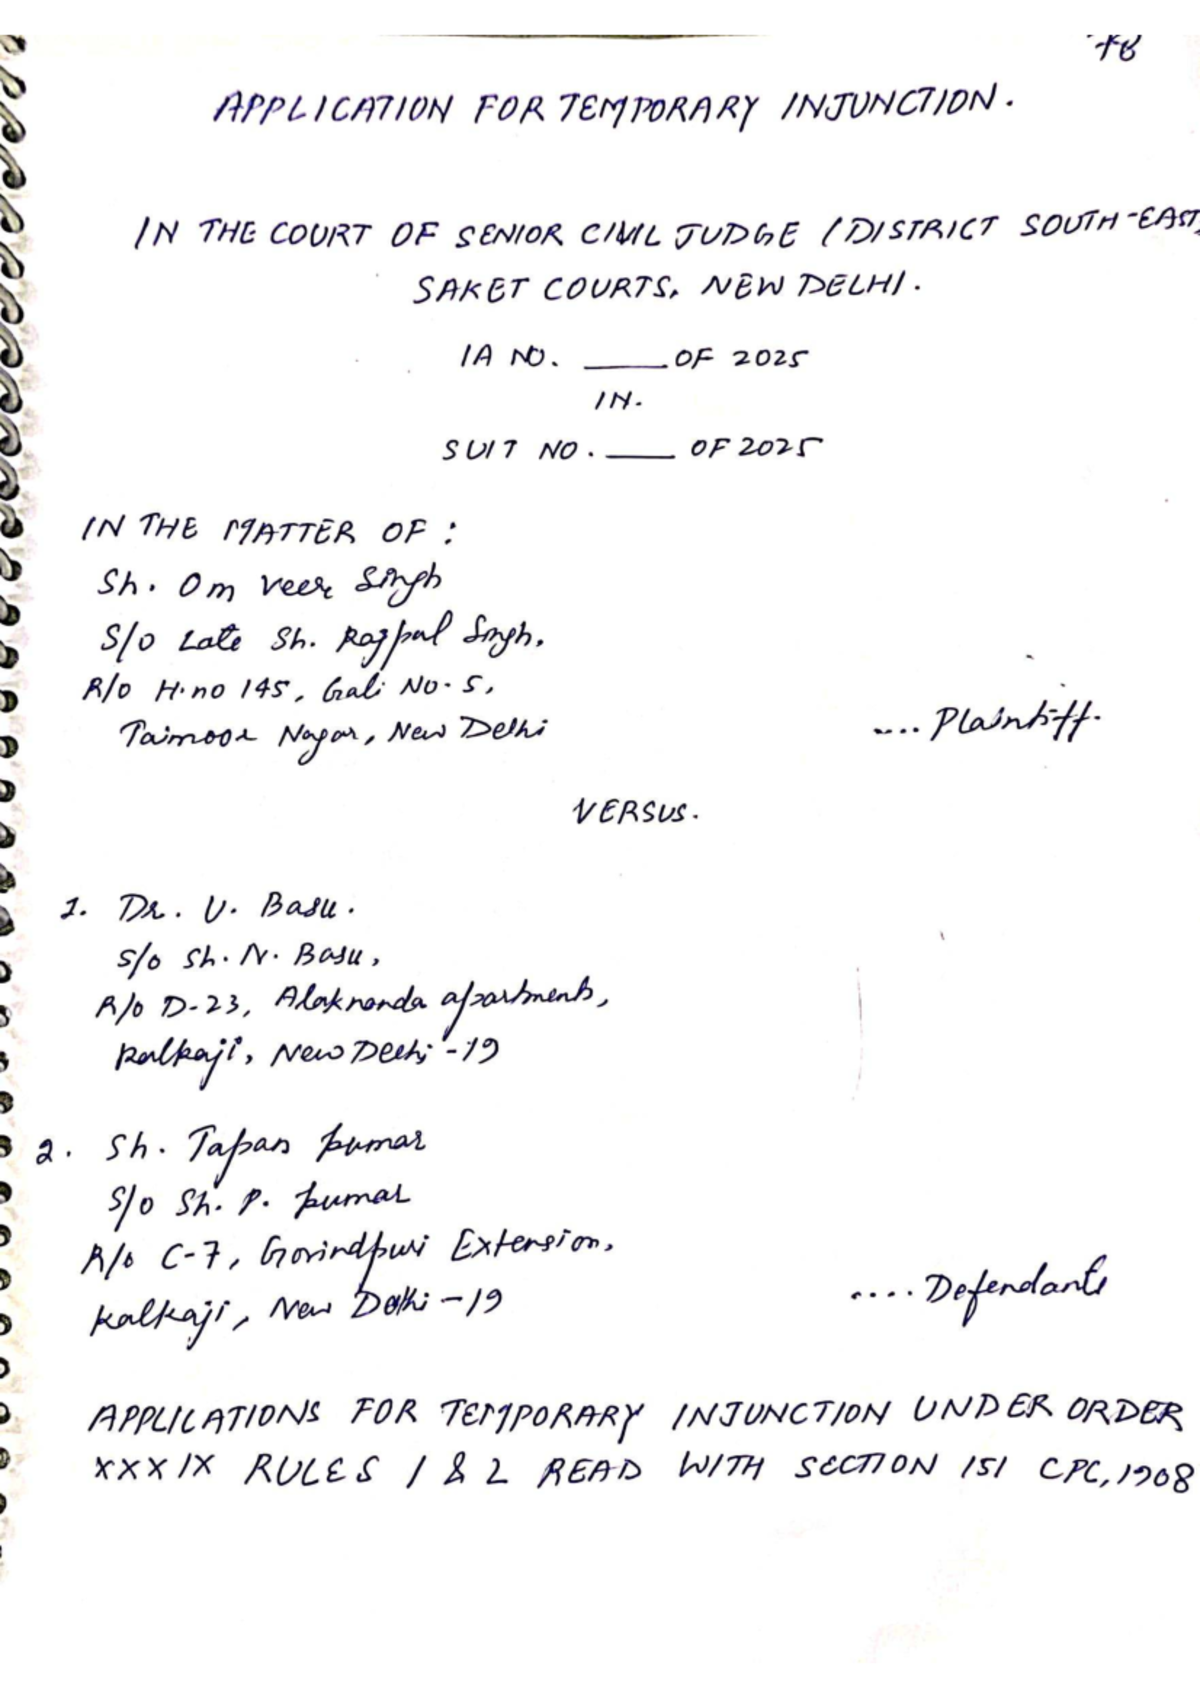 78
APPLICATION FOR TEMPORARY INJUNCTION.
IN THE COURT OF SENIOR CIVIL JUDGE (DISTRICT SOUTH-EAST)
SAKET COURTS, NEW DELHI.
IA NO. ____ OF 2025
IN.
SUIT NO. ____ OF 2025
IN THE MATTER OF :
Sh. Om Veer Singh
S/o Late Sh. Rajpal Singh,
R/o H.no 145, Gali No. 5,
Taimoor Nagar, New Delhi
.... Plaintiff.
VERSUS.
1. Dr. U. Basu.
S/o Sh. N. Basu,
R/o D-23, Alaknanda apartments,
Kalkaji, New Delhi -19
2. Sh. Tapan Kumar
S/o Sh. P. Kumar
R/o C-7, Govindpuri Extension,
Kalkaji, New Delhi -19
.... Defendants
APPLICATIONS FOR TEMPORARY INJUNCTION UNDER ORDER
XXXIX RULES 1 & 2 READ WITH SECTION 151 CPC, 1908